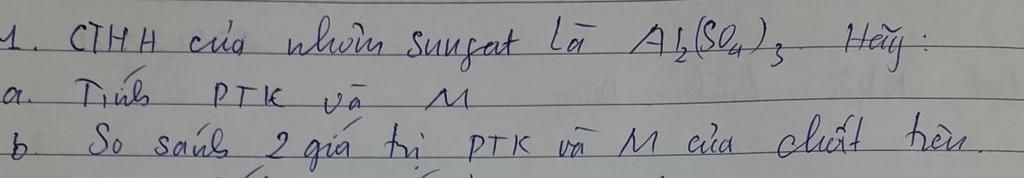 1. CTHH của nhôm sunfat là Al₂(SO₄)₃. Hãy:
a. Tính PTK và M
b. So sánh 2 giá trị PTK và M của chất trên.